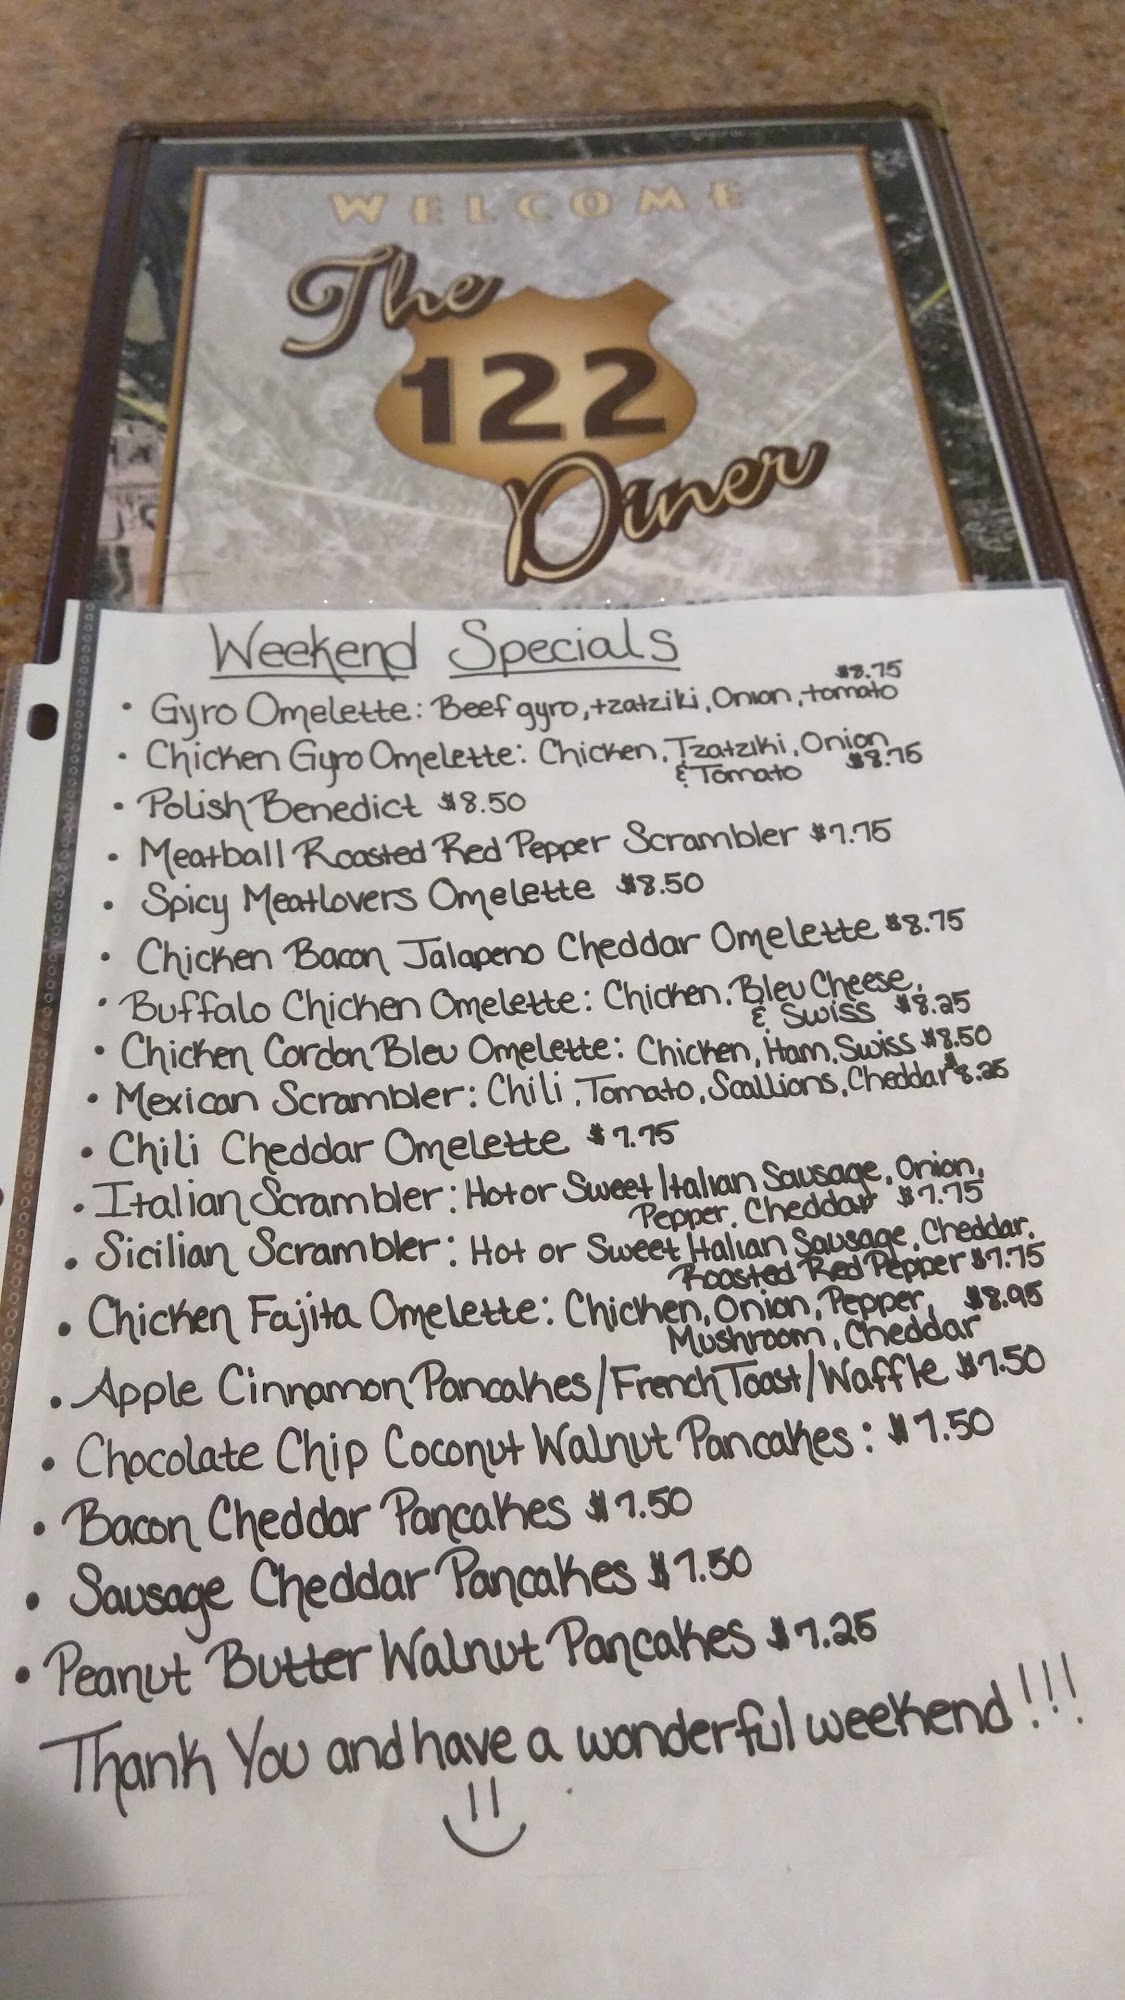 WELCOME
The
122
Diner
Weekend Specials
$8.75
• Gyro Omelette: Beef gyro, tzatziki, Onion, tomato
• Chicken Gyro Omelette: Chicken, Tzatziki, Onion
& Tomato $8.75
• Polish Benedict $8.50
• Meatball Roasted Red Pepper Scrambler $7.75
• Spicy Meatlovers Omelette $8.50
• Chicken Bacon Jalapeno Cheddar Omelette $8.75
• Buffalo Chicken Omelette: Chicken, Bleu Cheese,
& Swiss $8.25
• Chicken Cordon Bleu Omelette: Chicken, Ham, Swiss $8.50
• Mexican Scrambler: Chili, Tomato, Scallions, Cheddar $8.25
• Chili Cheddar Omelette $7.75
• Italian Scrambler: Hot or Sweet Italian Sausage, Onion,
Pepper, Cheddar $7.75
• Sicilian Scrambler: Hot or Sweet Italian Sausage, Cheddar,
Roasted Red Pepper $7.75
• Chicken Fajita Omelette: Chicken, Onion, Pepper, $8.95
Mushroom, Cheddar
• Apple Cinnamon Pancakes/French Toast/Waffle $7.50
• Chocolate Chip Coconut Walnut Pancakes: $7.50
• Bacon Cheddar Pancakes $7.50
• Sausage Cheddar Pancakes $7.50
• Peanut Butter Walnut Pancakes $7.25
Thank You and have a wonderful weekend!!!